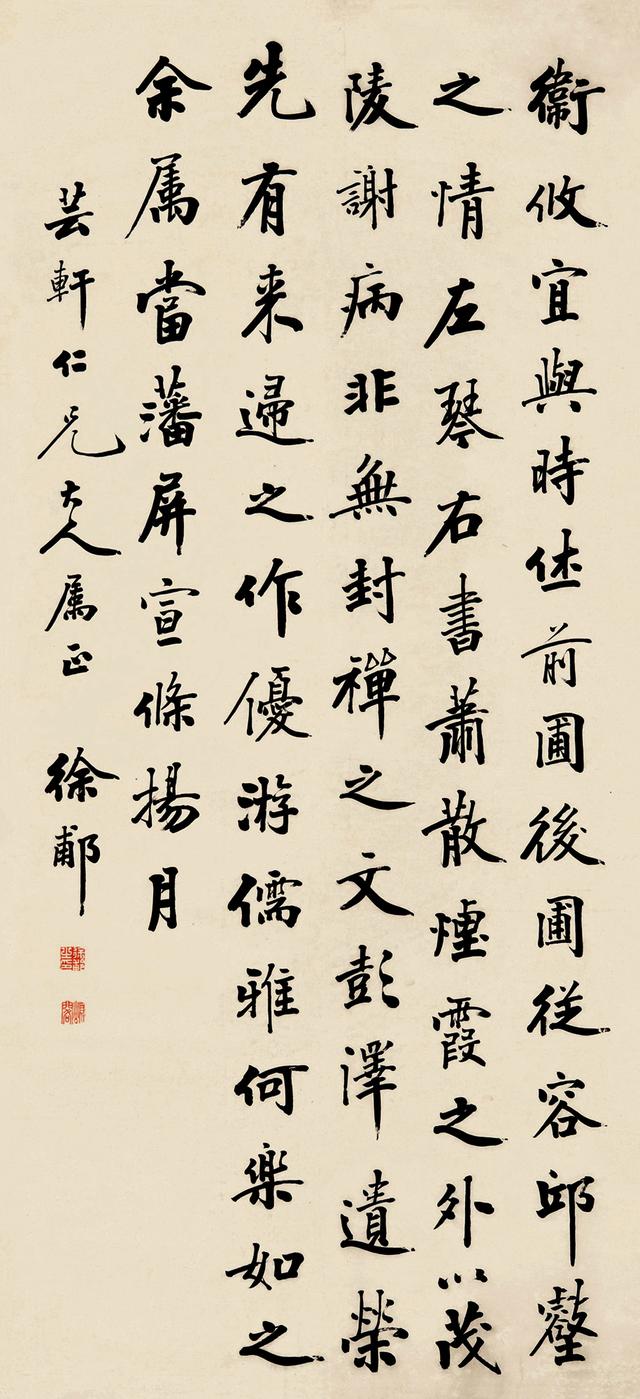 衞攸宜與時休前圃後圃從容邱壑
之情左琴右書蕭散煙霞之外以茂
陵謝病非無封禪之文彭澤遺榮
先有来歸之作優游儒雅何樂如之
余属當藩屏宣條揚月
芸軒仁兄大人属正 徐郙